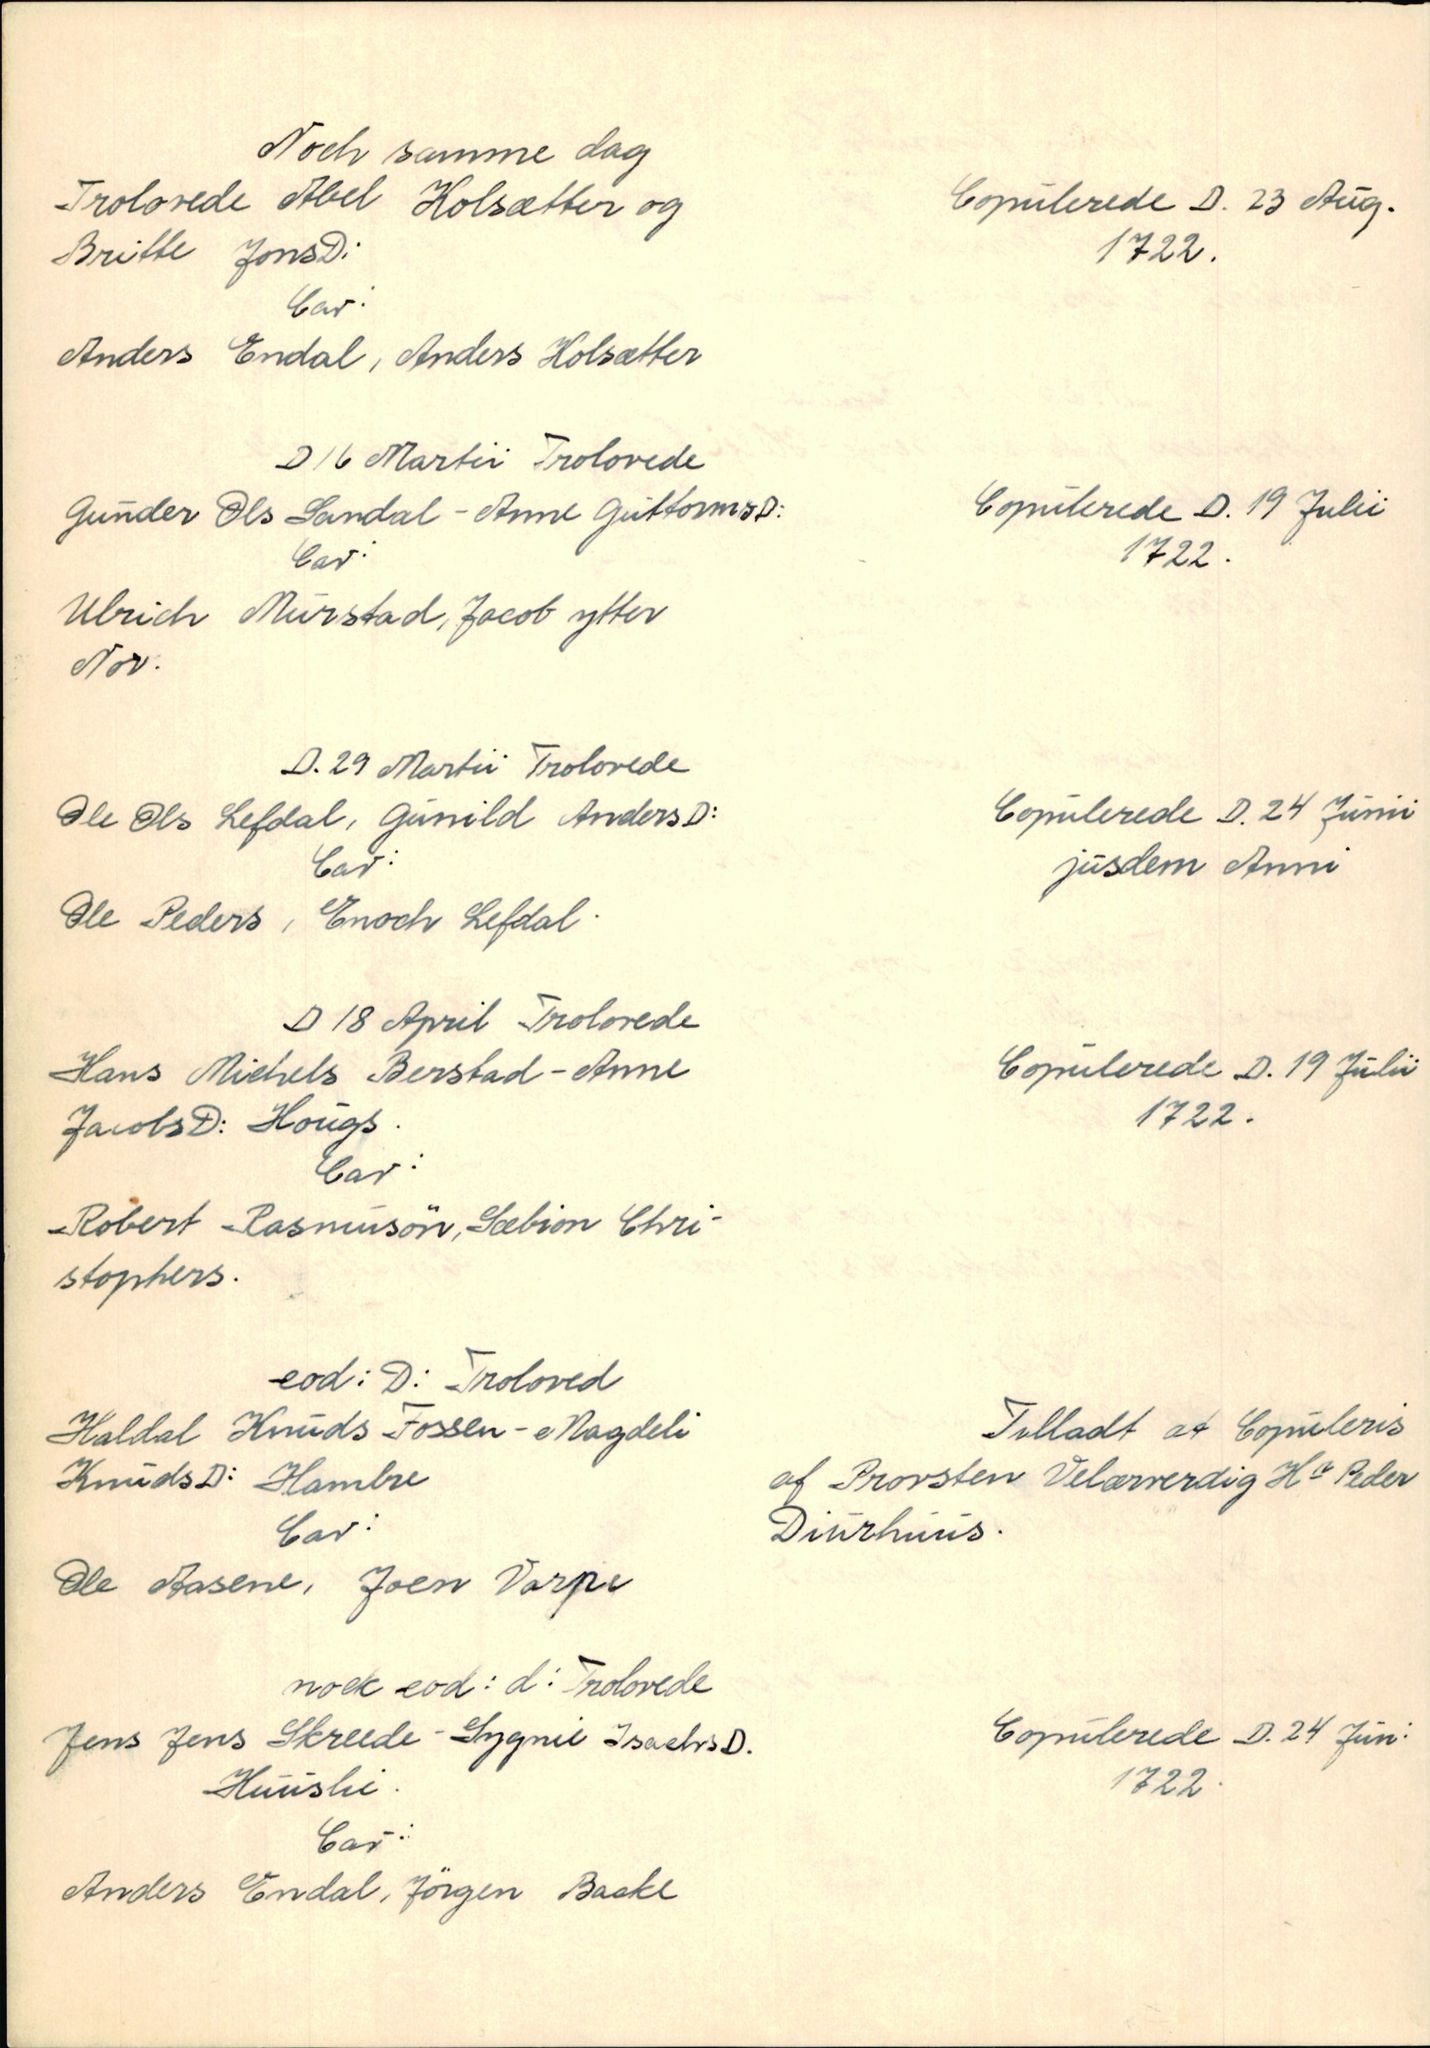 Noch samme dag
Trolovede Abel Holsætter og
Britte JonsD:
Cav:
Anders Endal, Anders Holsætter
Copulerede D. 23 Aug.
1722.
D 16 Martii Trolovede
Gunder Ols Sandal - Anne GuttormsD:
Cav:
Ulrich Murstad, Jacob ytter
Nov.
Copulerede D. 19 Julii
1722.
D. 29 Martii Trolovede
Ole Ols Lefdal, Gunild AndersD:
Cav:
Ole Peders, Enoch Lefdal.
Copulerede D. 24 Junii
jusdem Anni
D 18 April Trolovede
Hans Michels Berstad - Anne
JacobsD: Hougs.
Cav:
Robert Rasmusön, Sæbion Chri-
stophers.
Copulerede D. 19 Julii
1722.
eod: D: Troloved
Haldal Knuds Fossen - Magdeli
KnudsD: Hambre
Cav:
Ole Aasene, Joen Varpe
Tilladt at Copuleris
af Provsten Velærverdig Hr Peder
Diurhuus.
nock eod: d: Trolovede
Jens Jens Skreede - Sygnie IsachsD.
Huuslie.
Cav:
Anders Endal, Jörgen Backe
Copulerede D. 24 Jun:
1722.